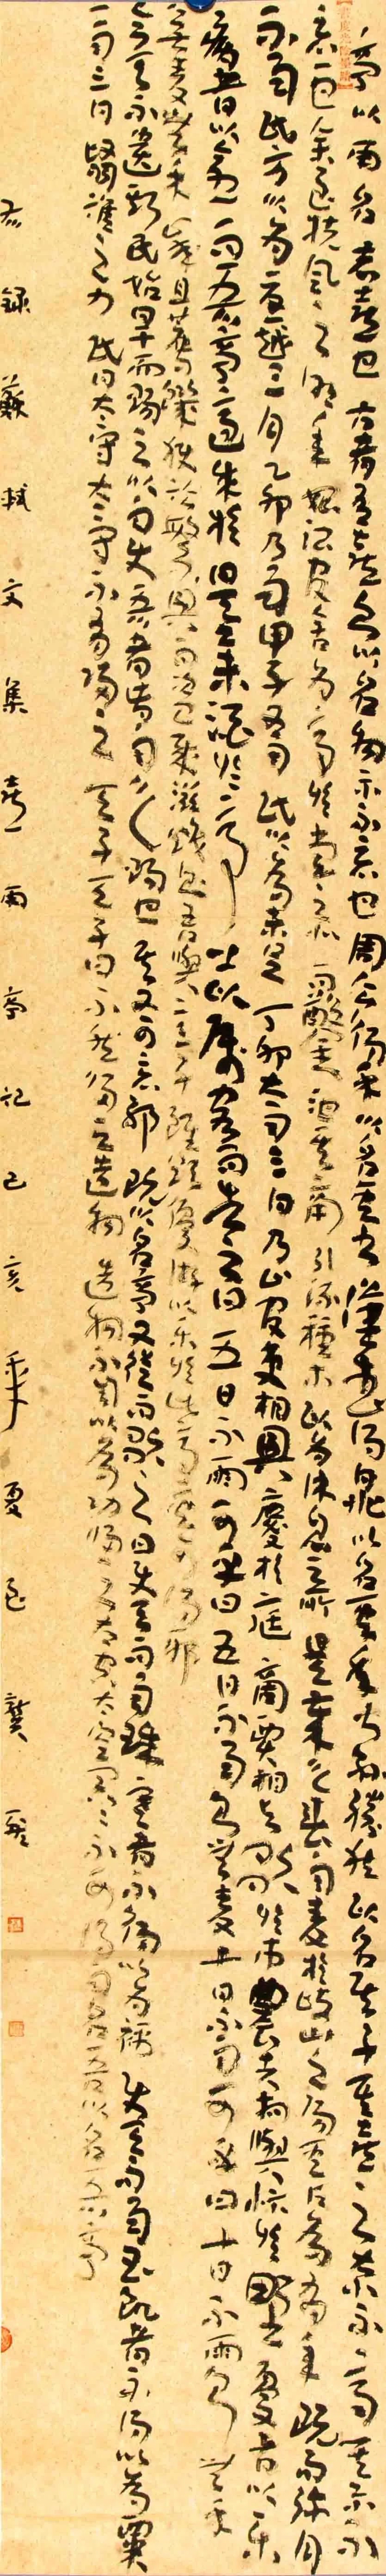 亭以雨名志喜也古者有喜則以名物示不忘也周公得禾以名其書漢武得鼎以名其年叔孫勝狄以名其子其喜之大小不齊其示不
忘一也余至扶風之明年始治官舍為亭於堂之北而鑿池其南引流種木以為休息之所是歲之春雨麥於岐山之陽其占為有年既而彌月
不雨民方以為憂越三月乙卯乃雨甲子又雨民以為未足丁卯大雨三日乃止官吏相與慶於庭商賈相與歌於市農夫相與忭於野憂者以樂
病者以愈而吾亭適成於是舉酒於亭上以屬客而告之曰五日不雨可乎曰五日不雨則無麥十日不雨可乎曰十日不雨則無禾
無麥無禾歲且薦饑獄訟繁興而盜賊滋熾則吾與二三子雖欲優游以樂於此亭其可得耶
今天不遺斯民始旱而賜之以雨使吾者皆雨之賜也其又可忘耶既以名亭又從而歌之曰使天而雨珠寒者不得以為襦使天而雨玉飢者不得以為粟
一雨三日繄誰之力民曰太守太守不有歸之天子天子曰不然歸之造物造物不自以為功歸之太空太空冥冥不可得而名吾以名吾亭
右錄蘇軾文集喜雨亭記己亥年夏